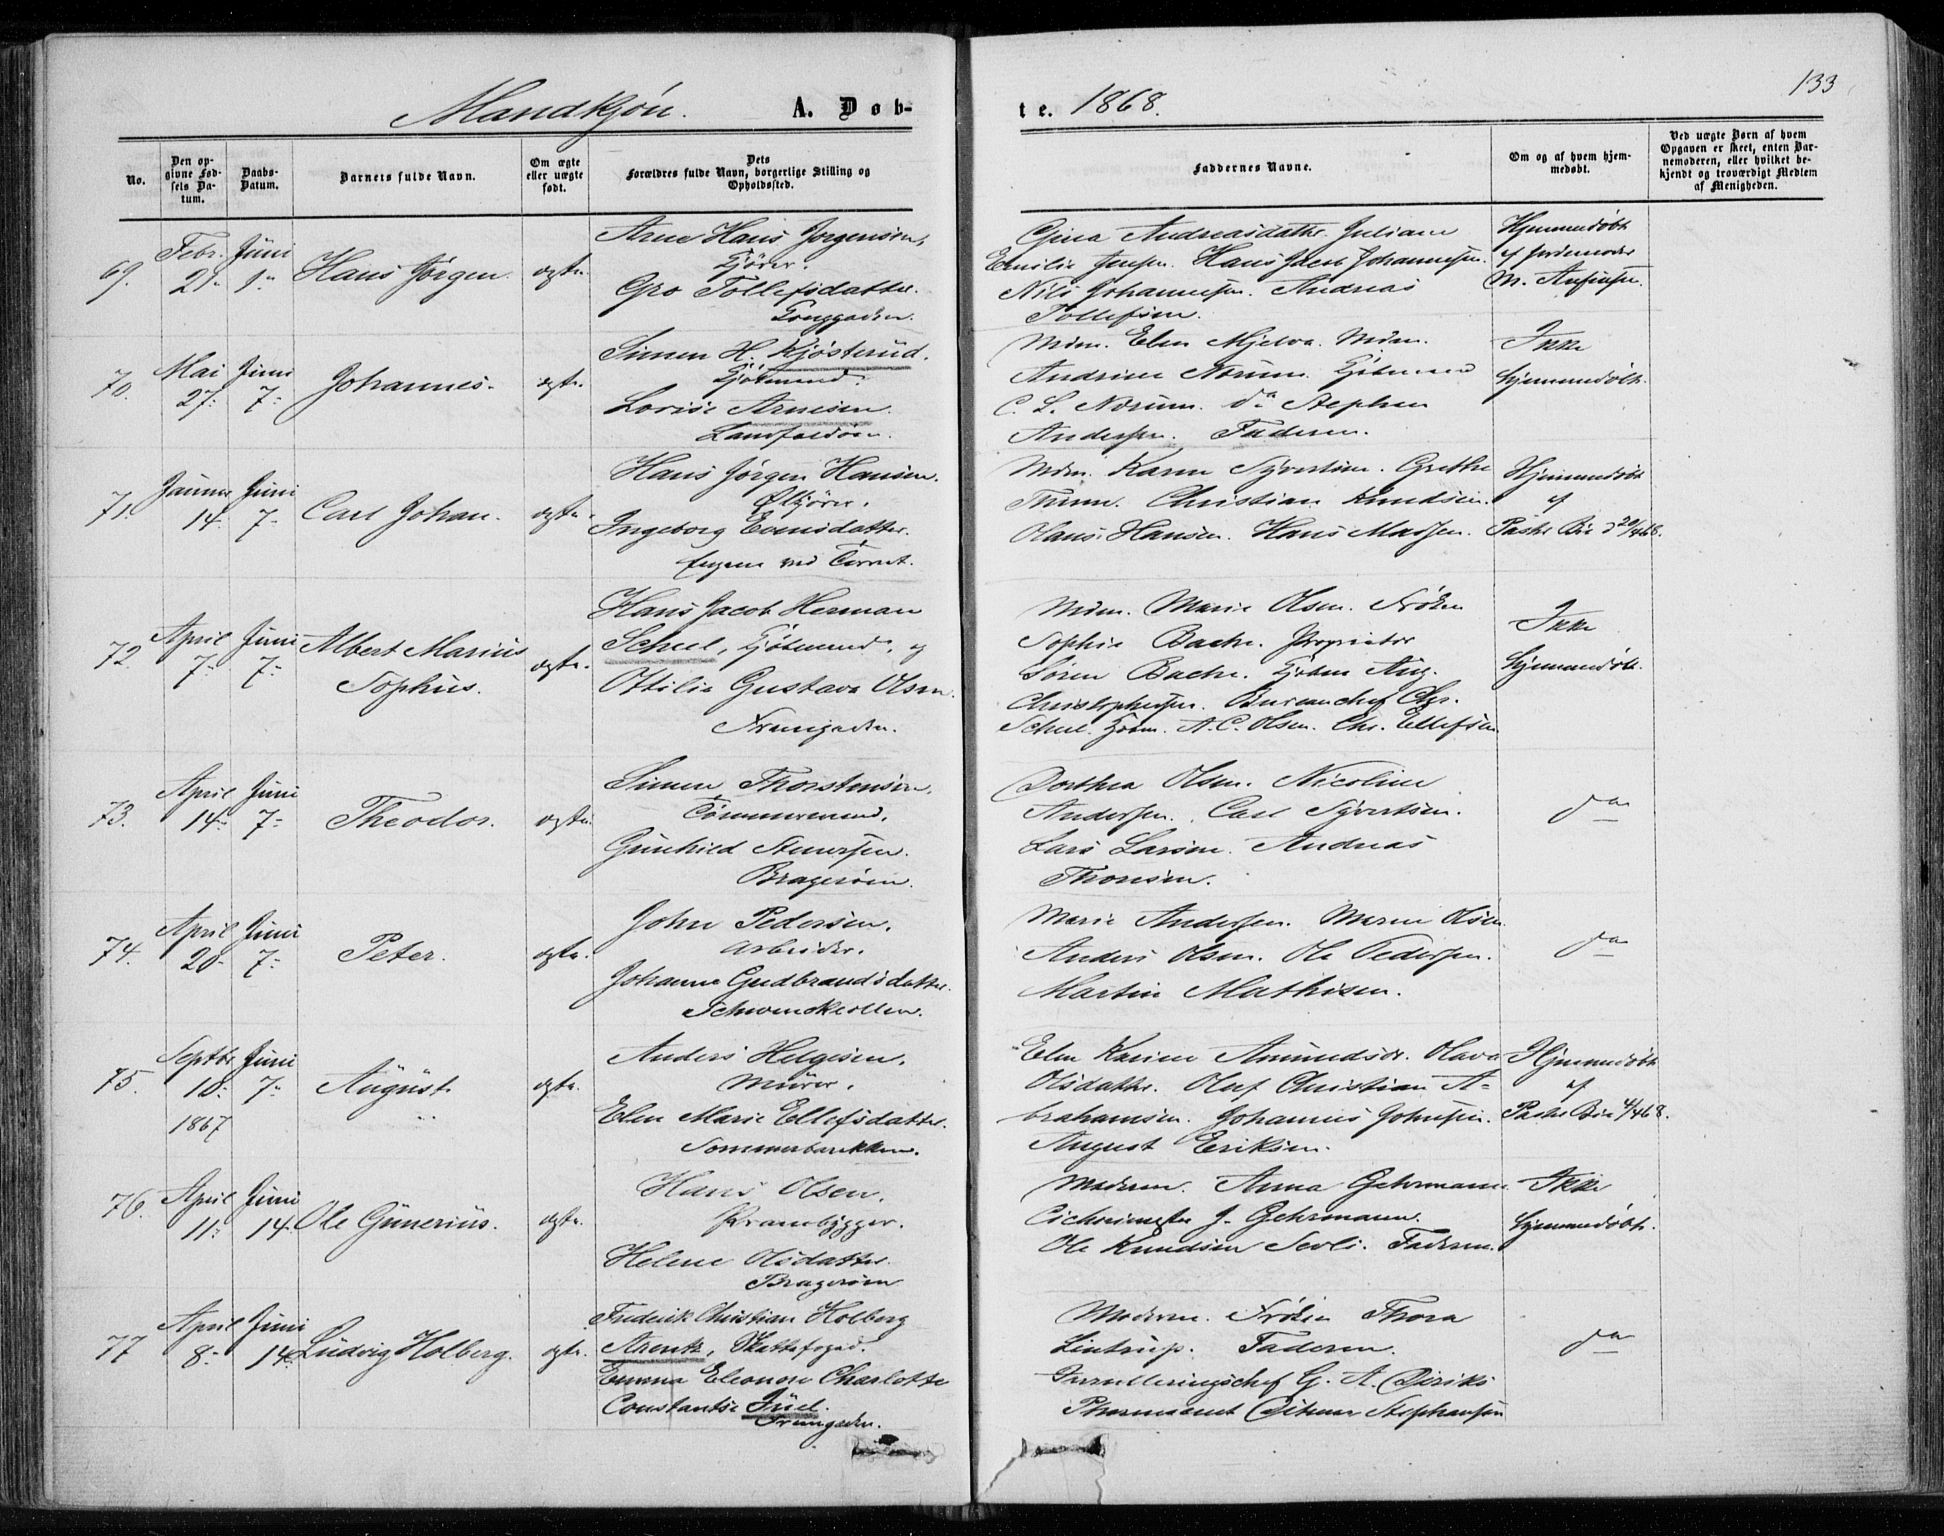 133
Mandkjøn. A. Døb-
te. 1868.
No.
Den op-
givne Fød-
sels Da-
tum.
Daabs-
Datum.
Barnets fulde Navn.
Om ægte
eller uægte
født.
Dets
Forældres fulde Navn, borgerlige Stilling og
Opholdssted.
Faddernes Navne.
Om og af hvem hjem-
medøbt.
Ved uægte Børn af hvem
Opgaven er skeet, enten Bar-
nemoderen, eller hvilket be-
kjendt og troværdigt Medlem
af Menigheden.
69.
Febr. 21.
Juni 1.
Hans Jørgen.
ægte.
Arne Hans Jørgensen,
Gro Tollefsdatter.
Gina Andreasdatter. Juliane
Emilie Jensen. Hans Jacob Johannesen.
Nils Johannesen. Andreas
Tollefsen.
Hjemmedøbt
af Jordemoder
M.
70.
Mai 27.
Juni 7.
Johannes.
ægte.
Simen H. Kjøsterud.
Kjøbmand.
Lovise Arnesen.
Landfaldøen.
Mdm. Elen Mjelva. Mdm.
Andrine Norum. Kjøbmand
C. L. Norum. do Stephen
Andersen. Faderen.
Ikke
hjemmedøbt.
71.
Januar 14.
Juni 7.
Carl Johan.
ægte.
Hans Jørgen Hansen.
Ingeborg Evensdatter.
Engene ved Torvet.
Mdm. Karen Syvertsen. Grethe
Thune. Christian Knudsen.
Olaus Hansen. Hans Madsen.
Hjemmedøbt
af
Pastor Bie d 20/4 68.
72.
April 7.
Juni 7.
Albert Marius
Sophus.
ægte.
Hans Jacob Herman
Scheel, Kjøbmand, og
Ottilia Gustava Olsen.
Mdm. Marie Olsen. Frøken
Sophie Bache. Proprietær
Søren Bache. Kjøbm Aug.
Christophersen. Bureauchef Chr.
Scheel. Kjøbm. A. C. Olsen. Chr. Ellefsen
Ikke
hjemmedøbt.
73.
April 14.
Juni 7.
Theodor.
ægte.
Simen Thorstensen.
Tømmermand.
Gunhild Stenersen.
Bragerøen.
Dorthea Olsen. Nicoline
Andersen. Carl Syvertsen.
Lars Larsen. Andreas
Thoresen.
do
74.
April 20.
Juni 7.
Peter.
ægte.
John Pedersen.
Arbeider.
Johanne Gudbrandsdatter.
Schwenckeollen.
Marie Andersen. Maren Olsen
Anders Olsen. Ole Pedersen.
Martin Mathisen.
do
75.
Septbr. 10. 1867
Juni 7.
August.
ægte.
Anders Helgesen.
Murer.
Elen Marie Ellefsdatter.
Sommerbakken.
Elen Karine Amundsdr. Olava
Olsdatter. Oluf Christian A-
brahamsen. Johannes Johnsen.
August Eriksen.
Hjemmedøbt
af
Pastor Bie 4/4 68.
76.
April 11.
Juni 14.
Ole Gunerius.
ægte.
Hans Olsen.
Prambygger.
Helene Olsdatter.
Bragerøen
Moderen. Anna Gehrmann.
J. Gehrmann.
Ole Knudsen Faderen.
Ikke
hjemmedøbt.
77
April 8.
Juni 14.
Ludvig Holberg.
ægte.
Frederik Christian Holberg
Arentz, Skattefoged.
Emma Eleonore Charlotte
Constantse Juel.
Moderen. Frøken Thora
Lintrup. Faderen.
G. A. Diriks
Pharmaceut Ditmar Stephansen
do